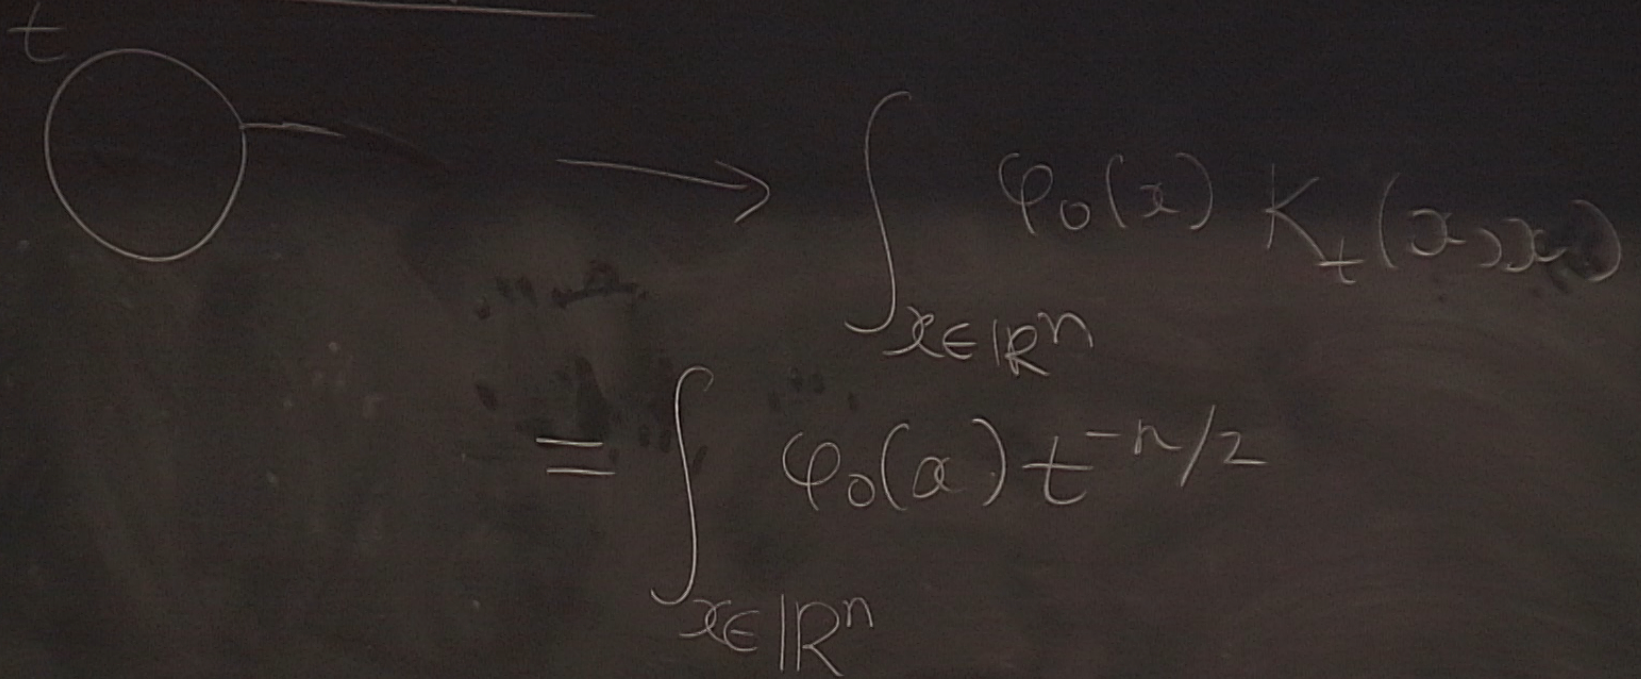 t
→ ∫_{x∈ℝⁿ} φ₀(x) K_t(x,x)
= ∫_{x∈ℝⁿ} φ₀(x) t^{-n/2}